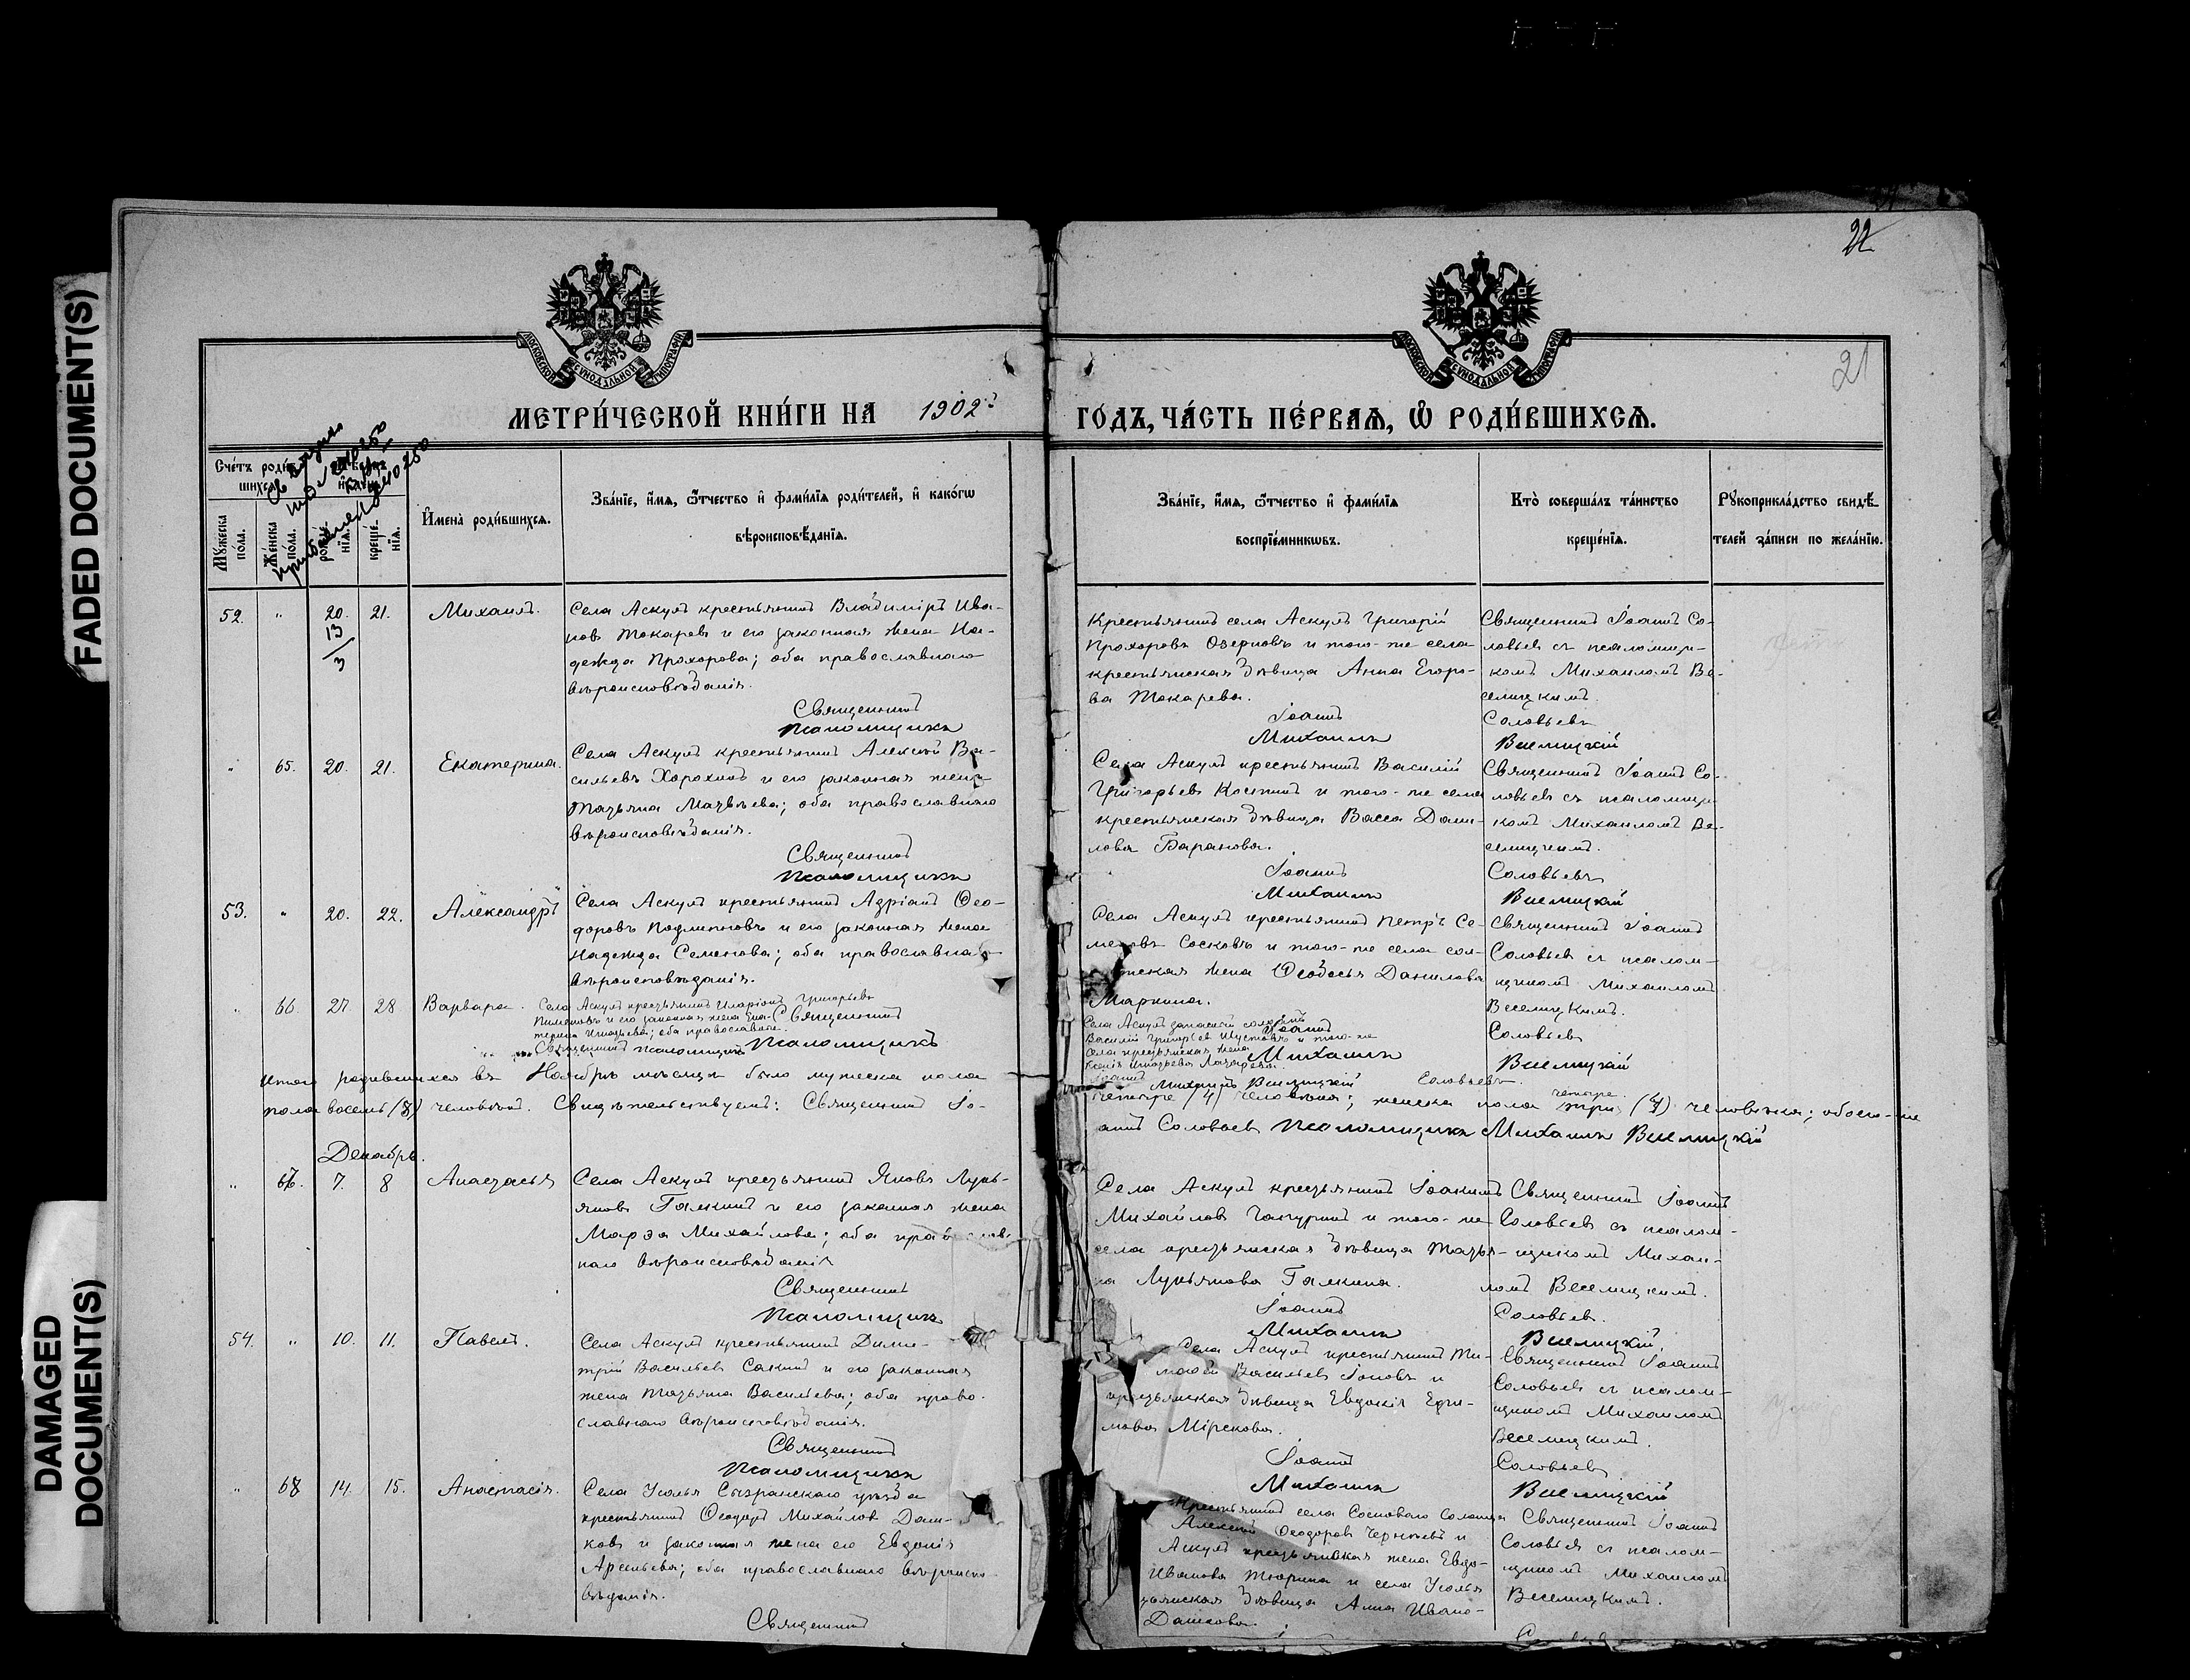 FADED DOCUMENT(S)
DAMAGED
DOCUMENT(S)
22
21
МОСКОВСКОЙ СѴНОДАЛЬНОЙ ТИПОГРАФІИ
МОСКОВСКОЙ СѴНОДАЛЬНОЙ ТИПОГРАФІИ
МЕТРИ́ЧЕСКОЙ КНИ́ГИ НА 1902 ГО́ДЪ, ЧА́СТЬ ПЕ́РВАѦ, Ѡ҆ РОДИ́ВШИХСѦ.
Сче́тъ роди́в-
шихсѧ
Мꙋ́жеска
по́ла.
Же́нска
по́ла.
рожде́-
нїѧ.
креще́-
нїѧ.
И҆мена̀ роди́вшихсѧ.
Зва́нїе, и҆́мѧ, ѻ҆́тчество и҆ фами́лїѧ роди́телей, и҆ како́гѡ
вѣроисповѣ́данїѧ.
Зва́нїе, и҆́мѧ, ѻ҆́тчество и҆ фами́лїѧ
воспрїе́мникѡвъ.
Кто̀ соверша́лъ та́инство
креще́нїѧ.
Рꙋкоприкла́дство свидѣ́-
телей за́писи по жела́нїю.
52. " 20. 21. Михаилъ.
13/3
Села Аскулъ крестьянинъ Владиміръ Ива-
новъ Токаревъ и его законная жена На-
дежда Прохорова; оба православнаго
вѣроисповѣданія.
Священникъ
Псаломщикъ
Крестьянинъ села Аскулъ Григорій
Прохоровъ Озерновъ и того-же села
крестьянская дѣвица Анна Егоро-
ва Токарева.
Іоаннъ
Михаилъ
Священникъ Іоаннъ Со-
ловьевъ съ псаломщи-
комъ Михаиломъ Ве-
селицкимъ.
Соловьевъ
Веселицкій
" 65. 20. 21. Екатерина.
Села Аскулъ крестьянинъ Алексѣй Ва-
сильевъ Хорохинъ и его законная жена
Татьяна Матвѣева; оба православнаго
вѣроисповѣданія.
Священникъ
Псаломщикъ
Села Аскулъ крестьянинъ Василій
Григорьевъ Костинъ и того-же села
крестьянская дѣвица Васса Дани-
лова Баранова.
Іоаннъ
Михаилъ
Священникъ Іоаннъ Со-
ловьевъ съ псаломщи-
комъ Михаиломъ Ве-
селицкимъ.
Соловьевъ
Веселицкій
53. " 20. 22. Александръ
Села Аскулъ крестьянинъ Адріанъ Ѳео-
доровъ Подлипновъ и его законная жена
Надежда Семенова; оба православнаго
вѣроисповѣданія.
Священникъ
Псаломщикъ
Села Аскулъ крестьянинъ Петръ Се-
меновъ Сосковъ и того-же села сол-
датская жена Ѳеодосья Данилова
Маркина.
Іоаннъ
Михаилъ
Священникъ Іоаннъ
Соловьевъ съ псалом-
щикомъ Михаиломъ
Веселицкимъ.
Соловьевъ
Веселицкій
" 66. 27. 28 Варвара.
Села Аскулъ крестьянинъ Иларіонъ Григорьевъ
Пименовъ и его законная жена Ека-
терина Игнатьева; оба православные.
Священникъ Псаломщикъ
Села Аскулъ запасный солдатъ
Василій Григорьевъ Шустовъ и того-же
села крестьянская жена
Ксенія Игнатьева Лазарева.
Іоаннъ Соловьевъ.
Михаилъ Веселицкій
Итого родившихся въ Ноябрѣ мѣсяцѣ было мужеска пола четыре (4) человѣка; женска пола три четыре (4) человѣка; обоего-же
пола восемь (8) человѣкъ. Свидѣтельствуемъ: Священникъ Іо-
аннъ Соловьевъ Псаломщикъ Михаилъ Веселицкій
Декабрь.
" 67. 7. 8 Анастасья
Села Аскулъ крестьянинъ Яковъ Лукь-
яновъ Галкинъ и его законная жена
Марѳа Михайлова; оба православ-
наго вѣроисповѣданія
Священникъ
Псаломщикъ
Села Аскулъ крестьянинъ Іоакимъ
Михайловъ Чапуринъ и того-же
села крестьянская дѣвица Татья-
на Лукьянова Галкина.
Іоаннъ
Михаилъ
Священникъ Іоаннъ
Соловьевъ съ псалом-
щикомъ Михаи-
ломъ Веселицкимъ.
Соловьевъ.
Веселицкій.
54. " 10. 11. Павелъ.
Села Аскулъ крестьянинъ Дими-
трій Васильевъ Сокинъ и его законная
жена Татьяна Васильева; оба право-
славнаго вѣроисповѣданія.
Священникъ
Псаломщикъ
Села Аскулъ крестьянинъ Ти-
моѳей Васильевъ Іоновъ и
крестьянская дѣвица Евдокія Ефи-
мова Мірскова.
Іоаннъ
Михаилъ
Священникъ Іоаннъ
Соловьевъ съ псалом-
щикомъ Михаиломъ
Веселицкимъ.
Соловьевъ
Веселицкій
" 68 14. 15. Анастасія.
Села Усолья Сызранскаго уѣзда
крестьянинъ Ѳеодоръ Михайловъ Даш-
ковъ и законная жена его Евдокія
Арсеньева; оба православнаго вѣроиспо-
вѣданія.
Священникъ
Крестьянинъ села Сосноваго Солонца
Алексѣй Ѳеодоровъ Чернѣевъ и
Аскулъ крестьянская жена Евдо-
Иванова Тюрина и села Усолья
дѣвица Анна Ивано-
Дашкова.
Священникъ Іоаннъ
Соловьевъ съ псалом-
щикомъ Михаиломъ
Веселицкимъ.